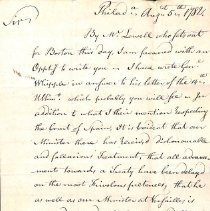 Philad.ª Augst 5th 1782
Sir,
By Mr. Lowell who sets out
for Boston this Day, I am favored with an
Oppty to write you. I have wrote Genl
Whipple in answer to his letter of the
Ultimo which probably you will see. In
addition to what I then mention'd respecting
the Court of Spain, it is evident that our
Minister there has received dishonourable
and fallacious treatment, that all advance-
ments towards a Treaty have been delayed
on the most frivolous pretences, that he
as well as our Minister at Versailles is